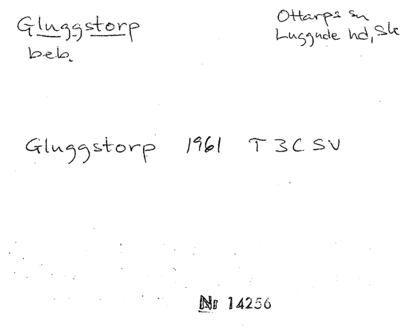 Gluggstorp
beb.
Ottarps sn
Luggude hd, Sk
Gluggstorp 1961 T 3C SV
Nr 14256